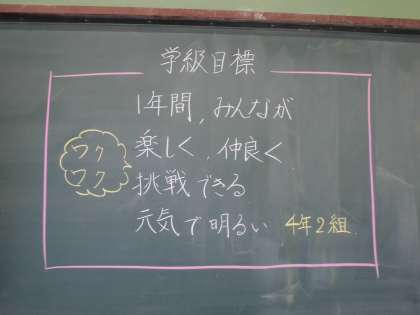 学級目標
1年間,みんなが
ワク
ワク
楽しく、仲良く
挑戦できる
元気で明るい 4年2組